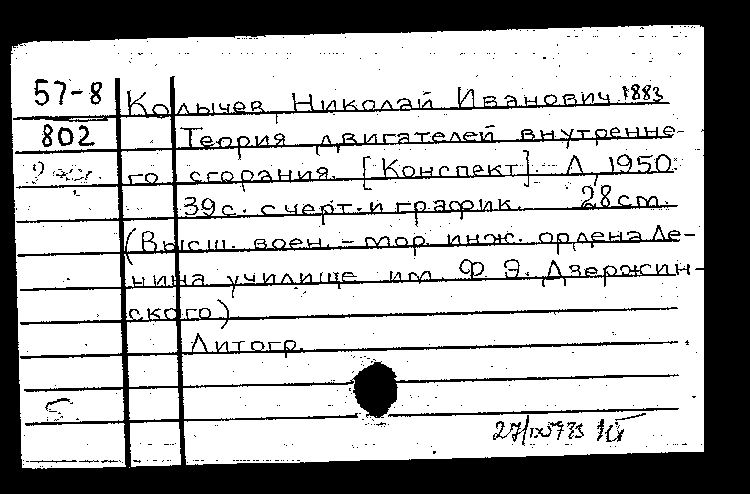 57-8 Колычев, Николай Иванович 1883
802 Теория двигателей внутренне-
го сгорания. [Конспект]. Л, 1950.
39с. с черт. и график. 28cm.
(Высш. воен.-мор. инж. ордена Ле-
нина училище им. Ф. Э. Дзержин-
ского)
Литогр.